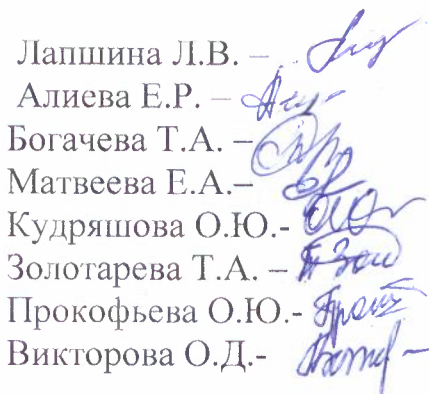 Лапшина Л.В. –
Алиева Е.Р. –
Богачева Т.А. –
Матвеева Е.А.–
Кудряшова О.Ю.-
Золотарева Т.А. –
Прокофьева О.Ю.-
Викторова О.Д.-